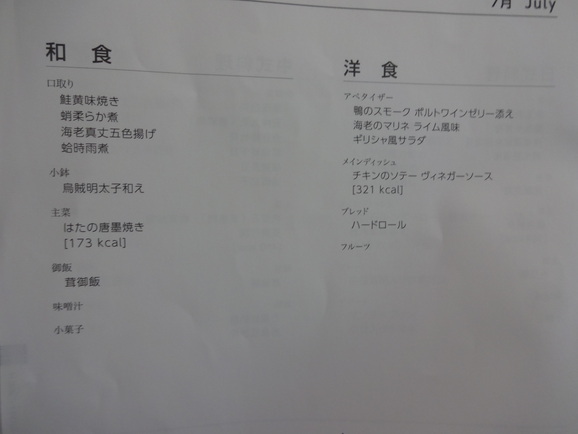 7月 July
和 食
口取り
鮭黄味焼き
蛸柔らか煮
海老真丈五色揚げ
蛤時雨煮
小鉢
烏賊明太子和え
主菜
はたの唐墨焼き
[173 kcal]
御飯
茸御飯
味噌汁
小菓子
洋 食
アペタイザー
鴨のスモーク ポルトワインゼリー添え
海老のマリネ ライム風味
ギリシャ風サラダ
メインディッシュ
チキンのソテー ヴィネガーソース
[321 kcal]
ブレッド
ハードロール
フルーツ